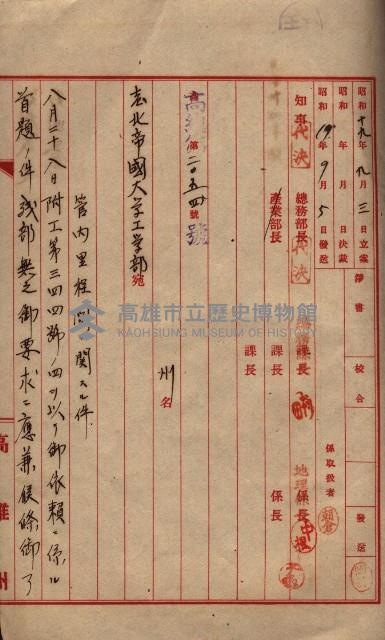 昭和十九年九月三日立案
昭和 年 月 日決裁
昭和19年9月5日發送
淨書
校合
發送
知事 代決
總務部長 代決
產業部長
課長
課長
課長
係長
係長
地理
係取扱者
朝倉
第二〇五四號
號
州名
台北帝國大學工学部宛
管内里程ニ関スル件
八月二十八日附工第三四四號ノ四ヲ以テ御依賴ニ係ル
首題ノ件残部無之御要求ニ應兼候條御了
高雄州
高雄市立歷史博物館
KAOHSIUNG MUSEUM OF HISTORY